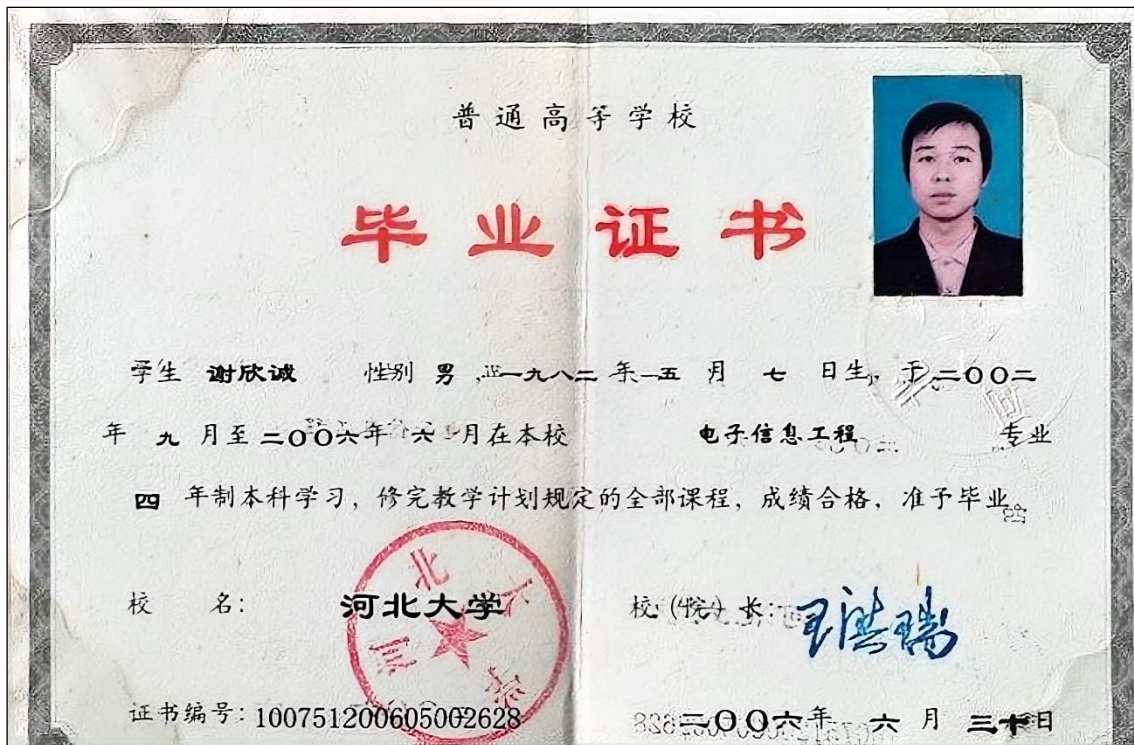 普通高等学校
毕业证书
学生 谢欣诚 性别 男, 一九八二 年 五 月 七 日生, 于 二〇〇二
年 九 月至 二〇〇六 年 六 月在本校 电子信息工程 专业
四 年制本科学习, 修完教学计划规定的全部课程, 成绩合格, 准予毕业。
校 名: 河北大学 校(院)长: 王洪瑞
证书编号: 100751200605002628 二〇〇六 年 六 月 三十 日